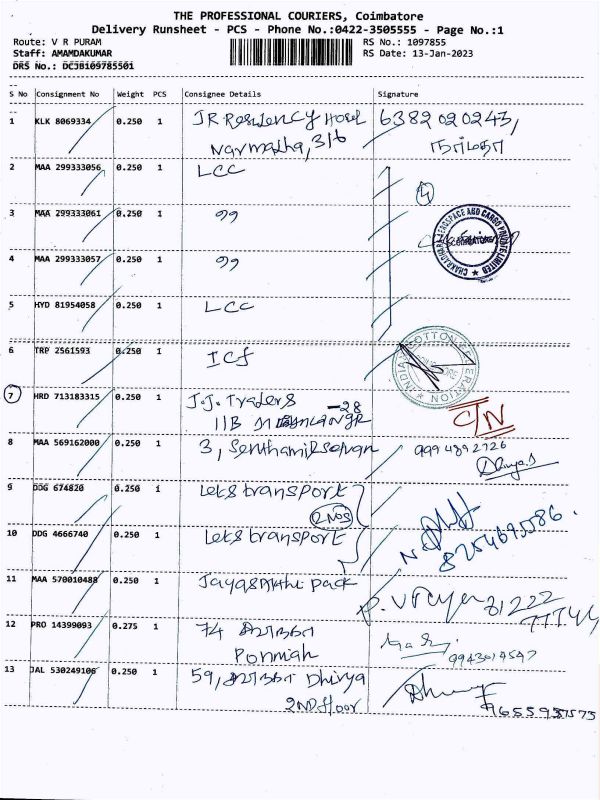 THE PROFESSIONAL COURIERS, Coimbatore
Delivery Runsheet - PCS - Phone No.:0422-3505555 - Page No.:1
Route: V R PURAM
RS No.: 1097855
Staff: AMAMDAKUMAR
RS Date: 13-Jan-2023
DRS No.: DCJB109785501
S No Consignment No Weight PCS Consignee Details Signature
1 KLK 8069334 0.250 1 JR Residency Hotel 6382020243,
Narmatha, 3/6 நர்மதா
2 MAA 299333056 0.250 1 LCC
4
3 MAA 299333061 0.250 1 ,,
4 MAA 299333057 0.250 1 ,,
CHAKRADHARA AEROSPACE AND CARGO PRIVATE LIMITED
5 HYD 81954058 0.250 1 LCC
6 TRP 2561593 0.250 1 ICF
INDIAN COTTON FEDERATION
7 HRD 713183315 1 J.J. Traders - 28
11B
C/N
8 MAA 569162000 0.250 1 3, Senthamil selvan 9994892726
Dhivya.S
9 DDG 674820 0.250 1 Lets transport
2 NOS
10 DDG 4666740 0.250 1 Lets transport
11 MAA 570010488 0.250 1 pack
12 PRO 14399093 0.275 1 74
Ponmiah
13 JAL 530249106 0.250 1 59, Dhivya
2ND floor